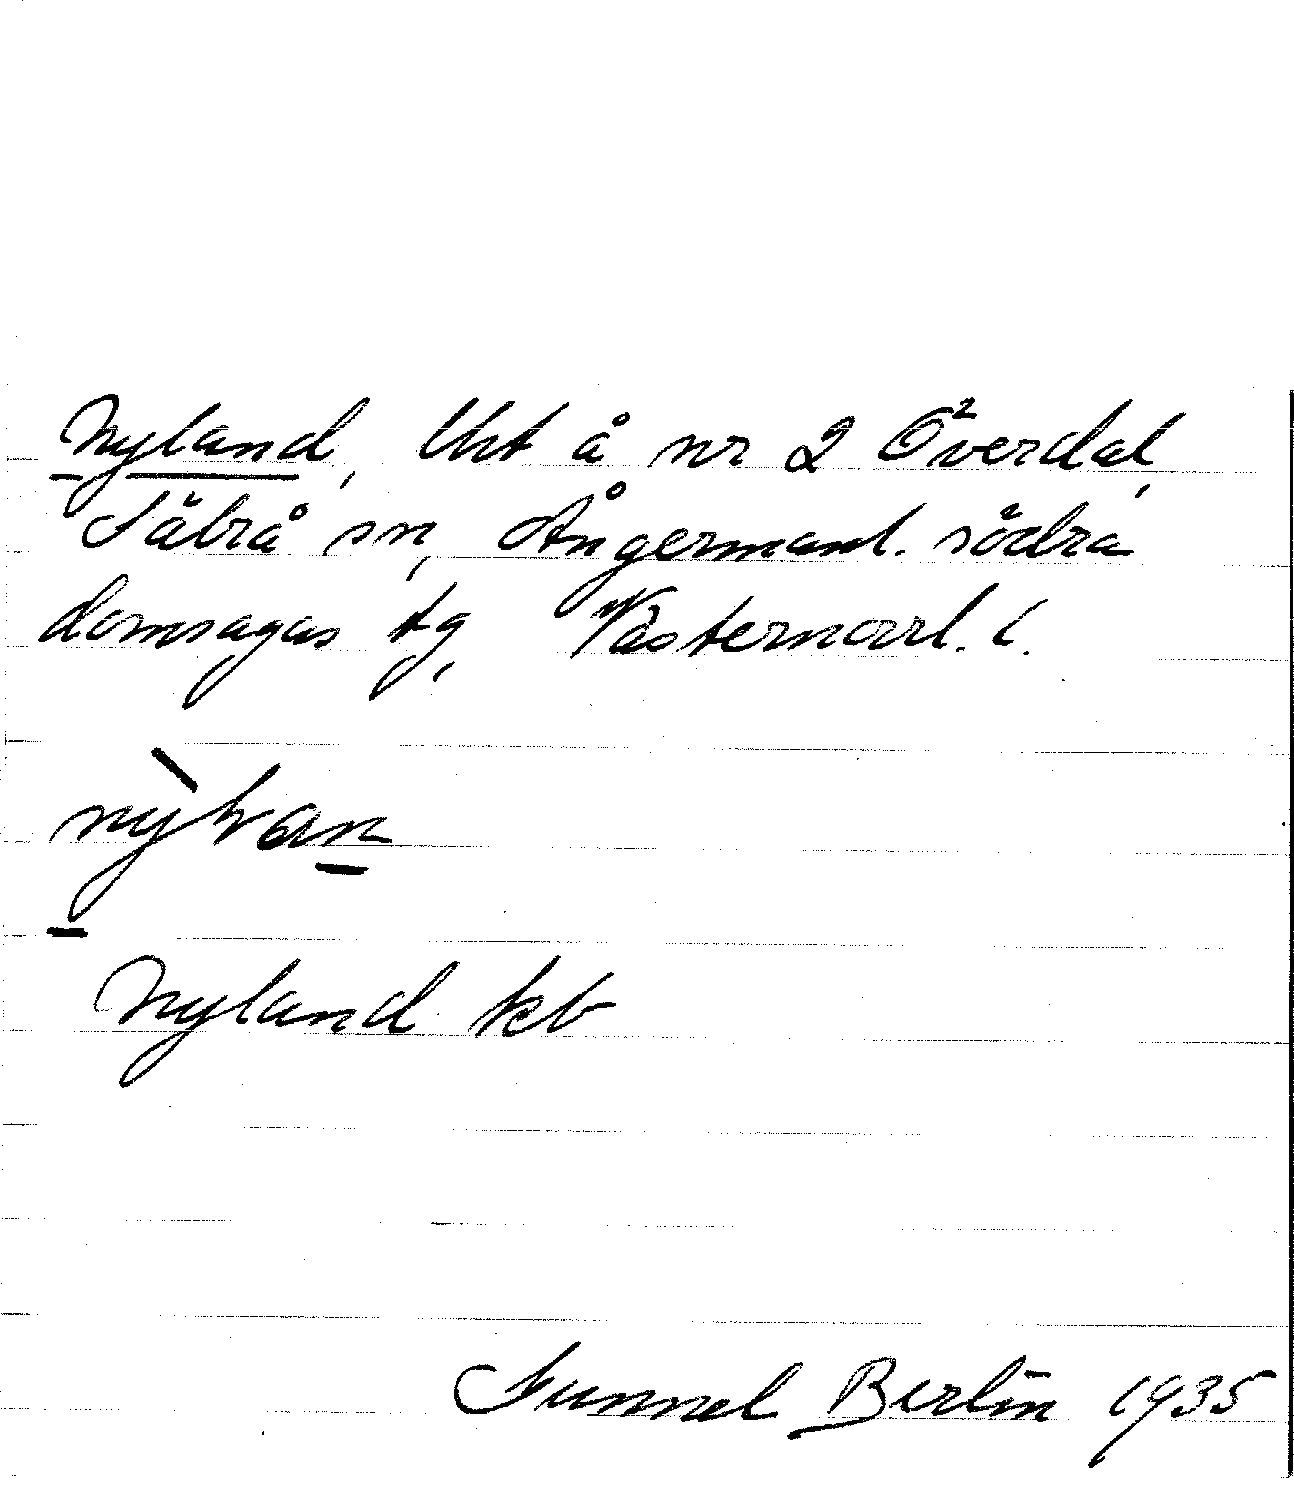 Nyland, Utt å nr 2 Överdal,
Säbrå sn, Ångermanl. södra
domsagas tg, Västernorrl. l.
Nyland kb
Gunnel Berlin 1935